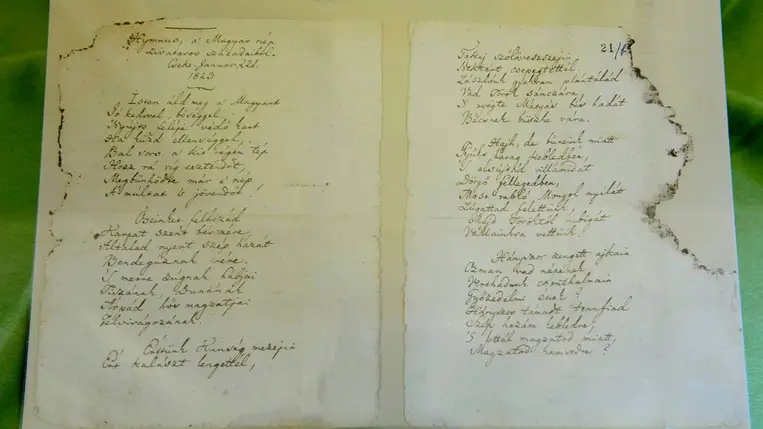 Hymnus, a' Magyar nép
zivataros századaiból.
Cseke, Januar. 22d.
1823
Isten áldd meg a' Magyart
Jó kedvvel, bőséggel,
Nyújts feléje védő kart
Ha küzd ellenséggel;
Bal sors a' kit régen tép
Hozz rá víg esztendőt,
Megbünhödte már e' nép
A' multat 's jövendőt.
Őseinket felhozád
Karpat szent bérczére,
Általad nyert szép hazát
Bendegúznak vére.
'S merre zúgnak habjai
Tiszának, Dunának
Árpád hős magzatjai
Felvirágozának.
Értünk Kunság mezején
Ért kalászt lengettél,
21/
Tokaj szőlővesszején
Nektárt csepegtettél.
Zászlónk gyakran plántálád
Vad török sánczára,
'S nyögte Mátyás bús hadát
Bécsnek büszke vára.
Hajh, de bűneink miatt
Gyúlt harag kebledben,
'S elsújtád villámidat
Dörgő fellegedben,
Most rabló Mongol nyilát
Zúgattad felettünk,
Majd Töröktől rabigát
Vállainkra vettünk.
Hányszor zengett ajkain
Ozman vad népének
Vert hadunk csonthalmain
Győzedelmi ének?
Hányszor támadt tennfiad
Szép hazám kebledre,
'S lettél magzatod miatt,
Magzatod hamvedre?